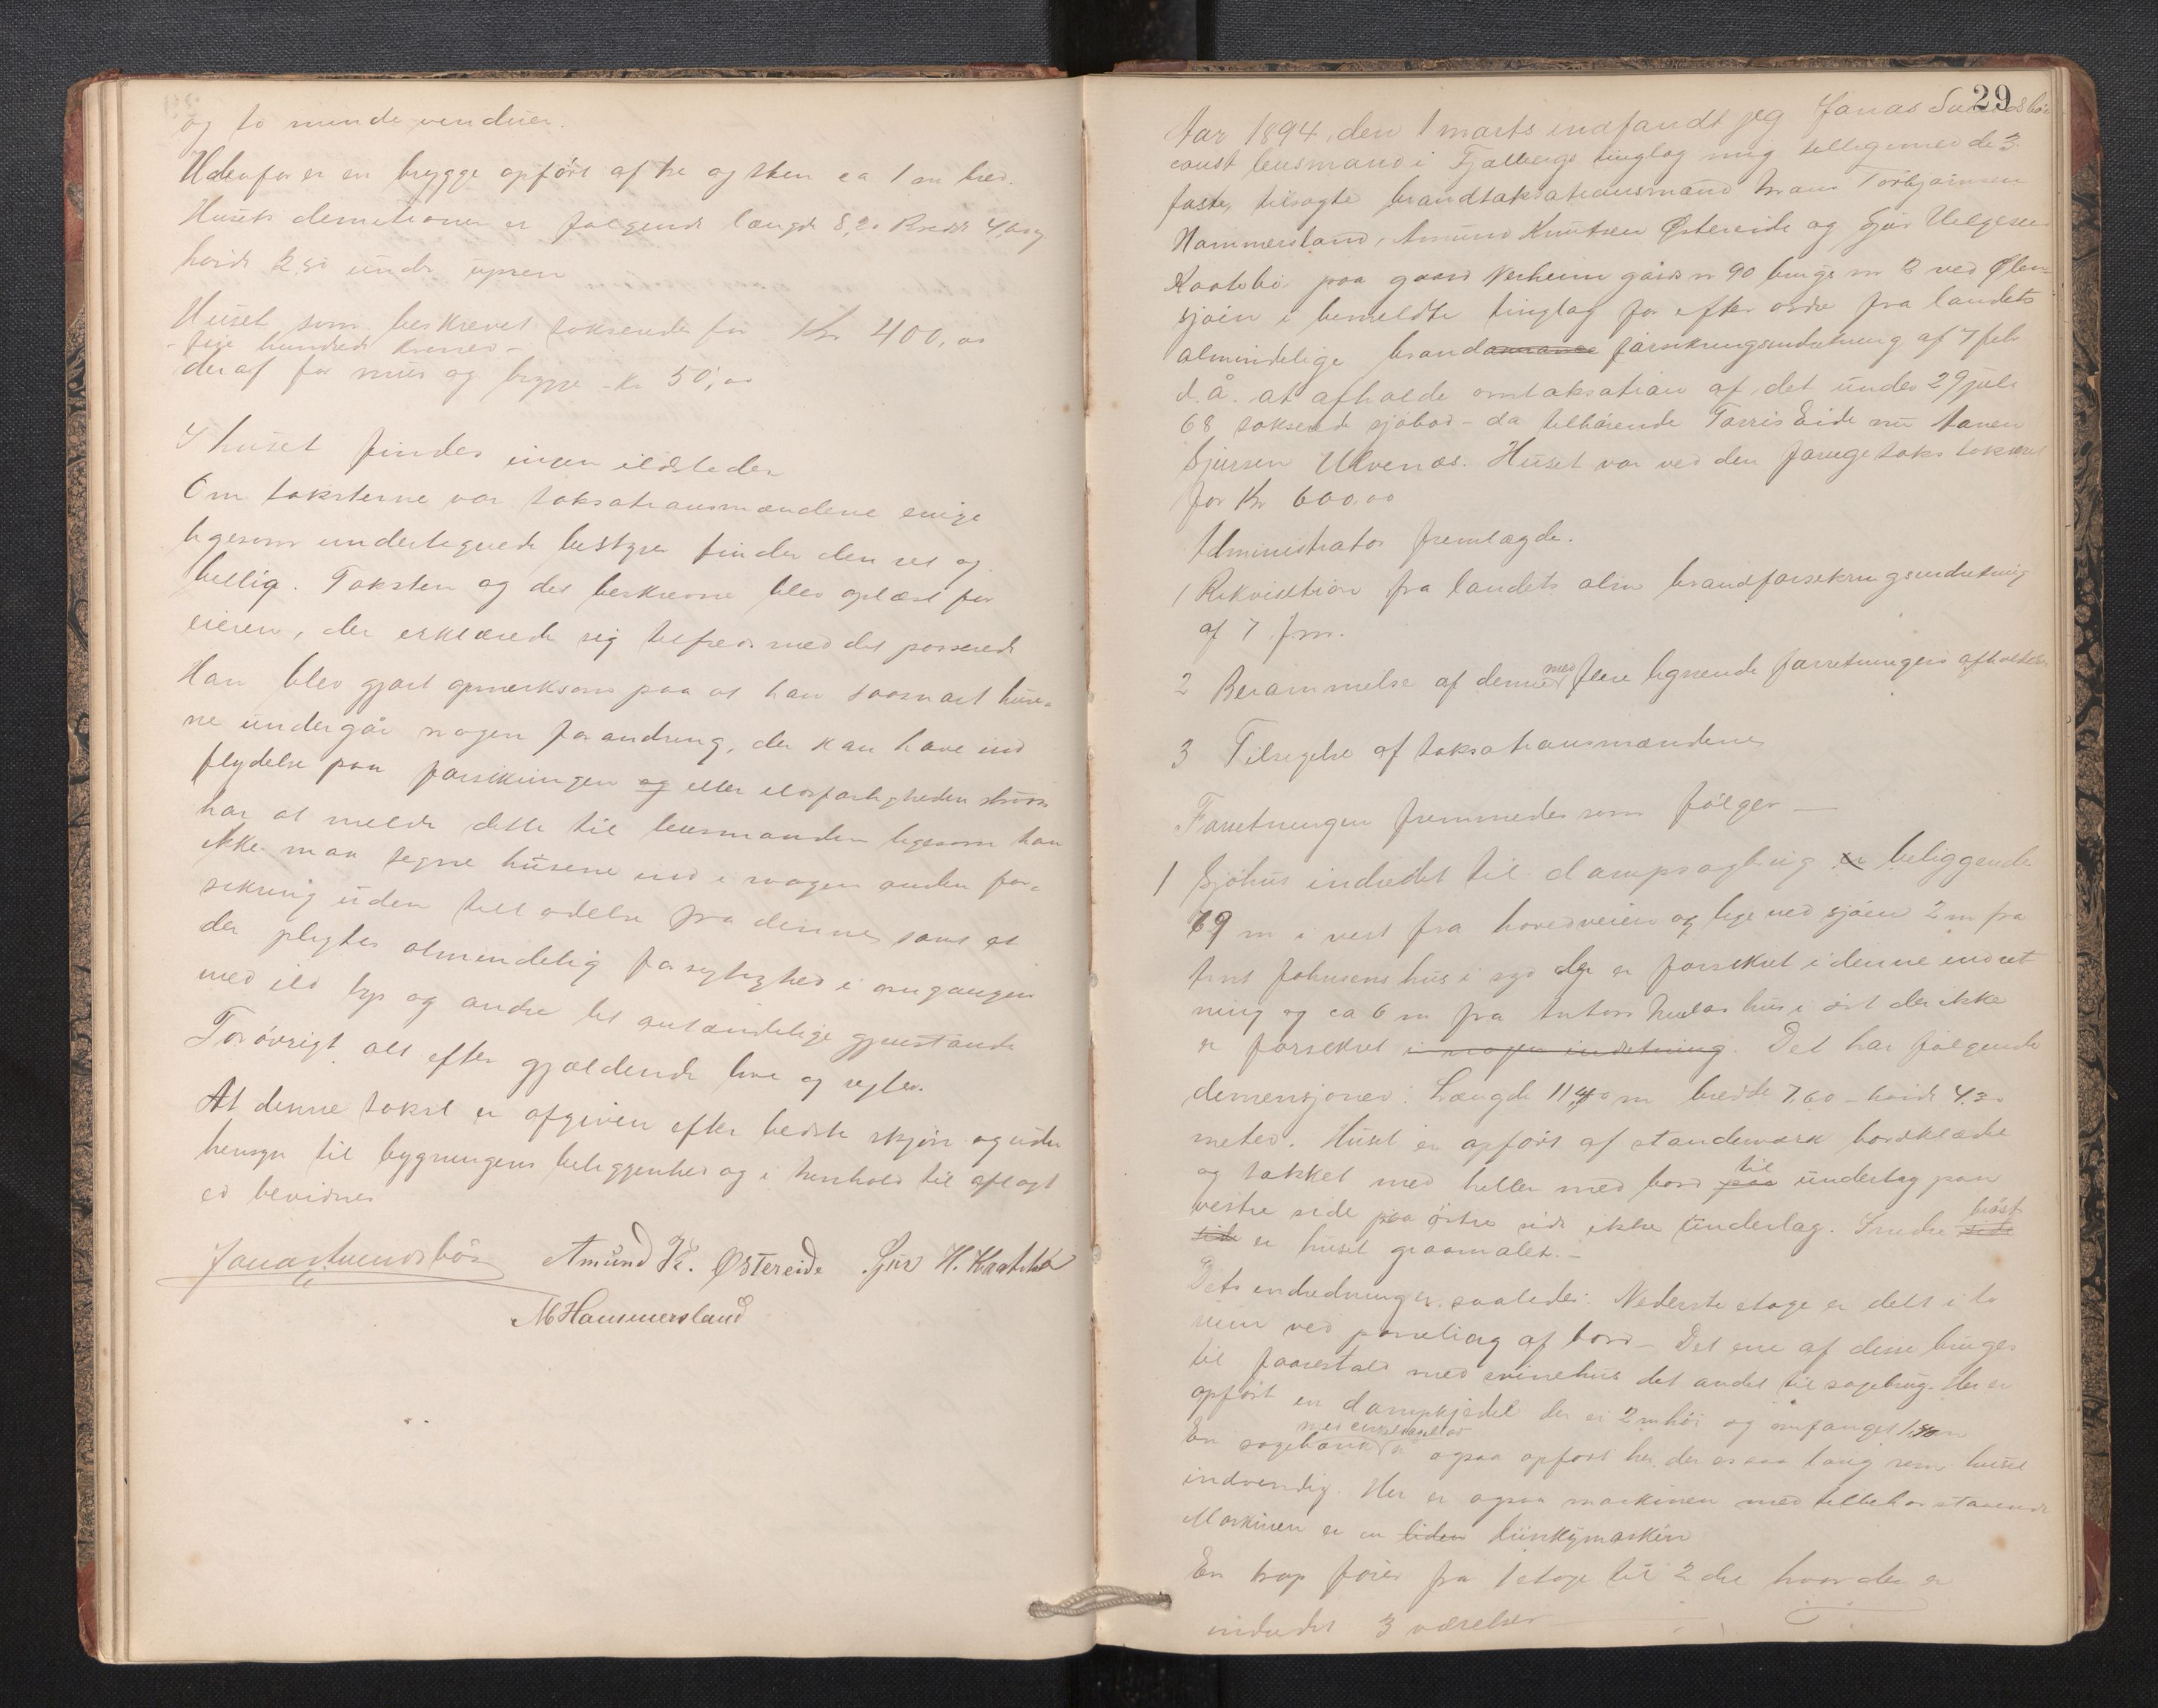 og to mindre venduer.
Udenfor er en brygge opført af træ og sten ca 1 m bred.
Husets demetioner er følgende længde 8,20 Bredde 4,60 og
høide 2,50 under upsen
Huset som beskrevet takseredes for Kr 400,00
- fire hundrede kroner -
deraf for mur og brygge - Kr 50,00
I huset findes ingen ildsteder
Om taksterne var taksationsmændene enige
ligesom undertegnede bestyrer finder den ret og
billig. Taksten og det beskrevne blev oplæst for
eieren, der erklærede sig tilfreds med det passerede
Han blev gjort opmerksom paa at han saasnart huse-
ne undergår nogen forandring, der kan have ind
flydelse paa forsikringen og eller ildsfarligheden straks
har at melde dette til lensmanden ligesom han
ikke maa tegne husene ind i nogen anden for-
sikring uden tilladelse fra denne, samt at
der pligtes almindelig forsigtighed i omgangen
med ild lys og andre let antændelige gjenstande
Forøvrigt alt efter gjældende love og regler.
At denne takst er afgiven efter bedste skjøn og uden
hensyn til bygningens beliggenhed og i henhold til aflagt
ed bevidnes
Jonas Sundsbø Amund K. Østereide Sjur H. Kaatebø
M Hammersland
29
Aar 1894, den 1 marts indfandt jeg Jonas Sundsbø
const lensmand i Fjelbergs tinglag mig tilligemed de 3
faste, tilsagte brandtaksationsmænd Torbjørnsen
Hammersland, Amund Knutsen Østereide og Sjur Helgesen
Kaatebø paa gaard gårds nr 90 brugs nr 8 ved Ølen-
sjøen i bemeldte tinglag for efter ordre fra landets
almindelige brand forsikringsindretning af 7 feb
d.å. at afholde omtaksation af det under 29 juli
68 takserede sjøbod - da tilhørende Torris Eide nu
Sjursen Ulvenes. Huset var ved den forrige takst takseret
for Kr 600.00
Administrator fremlagde.
1 Rekvisition fra landets alm brandforsikringsindretning
af 7 f.m.
2 Berammelse af denne med flere lignende forretningers afholdelse
3 Tilsigelse af taksationsmændene
Forretningen fremmedes som følger —
1 Sjøhus indredet til dampsagbrug er beliggende
69 m i vest fra hovedveien og lige ved sjøen 2 m fra
Johnsens hus i syd der er forsikret i denne indret
ning og ca 6 m fra hus i øst der ikke
er forsikret i nogen indretning. Det har følgende
demensjoner: Længde 11,40 m bredde 7,60 - høide 4.30
meter. Huset er opført af standerværk bordklædt
og takket med heller med bord paa til underlag paa
vestre side paa østre side ikke underlag. Indre side brøst
side er huset graamalet. -
Dets indredning er saaledes: Nederste etage er delt i to
rum ved paneling af bord - Det ene af disse bruges
til faarestald med svinehus det andet til sagbrug. Her er
opført en dampkjedel der er 2 m høi og omfanget 1,40 m
En sagebænk med cirkelsagblad er ogsaa opført her der er saa lang som huset
indvendig. Her er ogsaa maskinen med tilbehør staaende
Maskinen er en liden maskin
En trap fører fra 1 etage til 2 den hvor der er
indredet 3 værelser